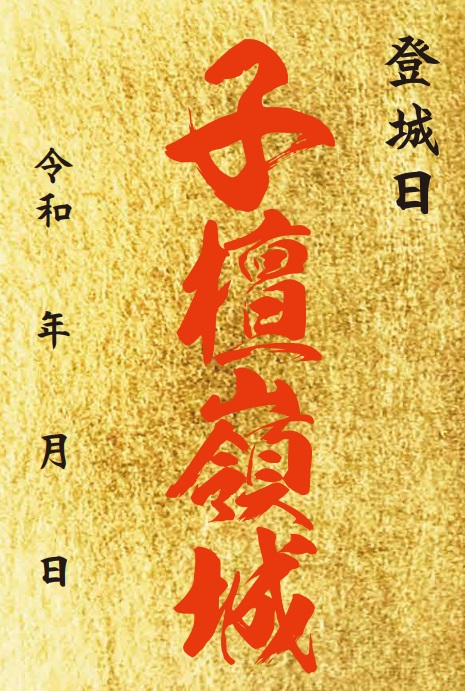 登城日
子檀嶺城
令和 年 月 日